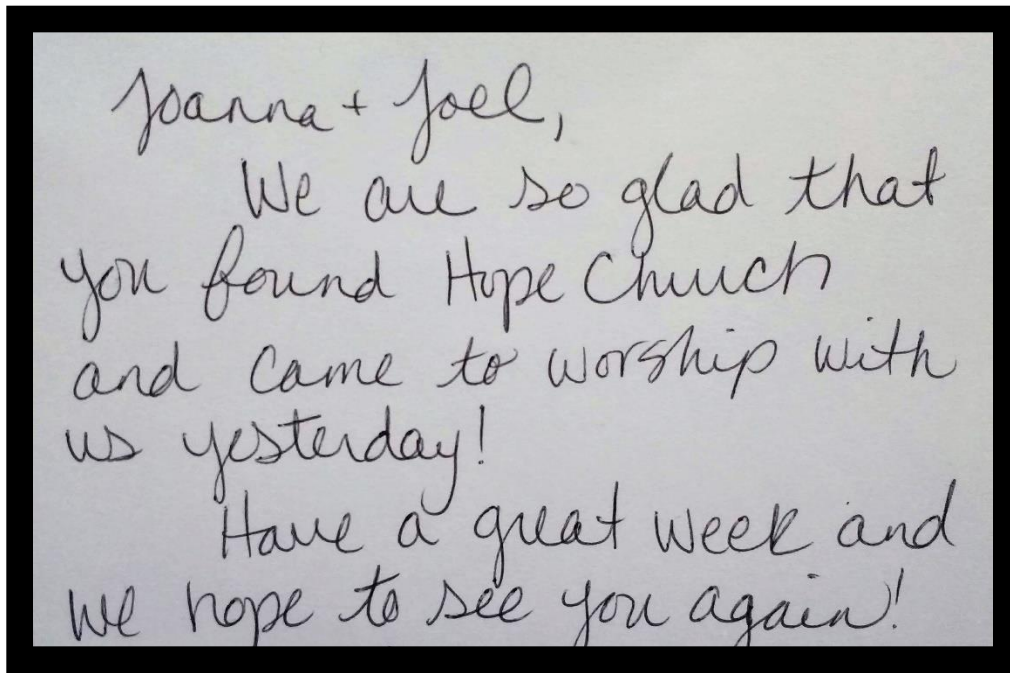 Joanna + Joel,
We are so glad that
you found Hope Church
and came to worship with
us yesterday!
Have a great week and
we hope to see you again!